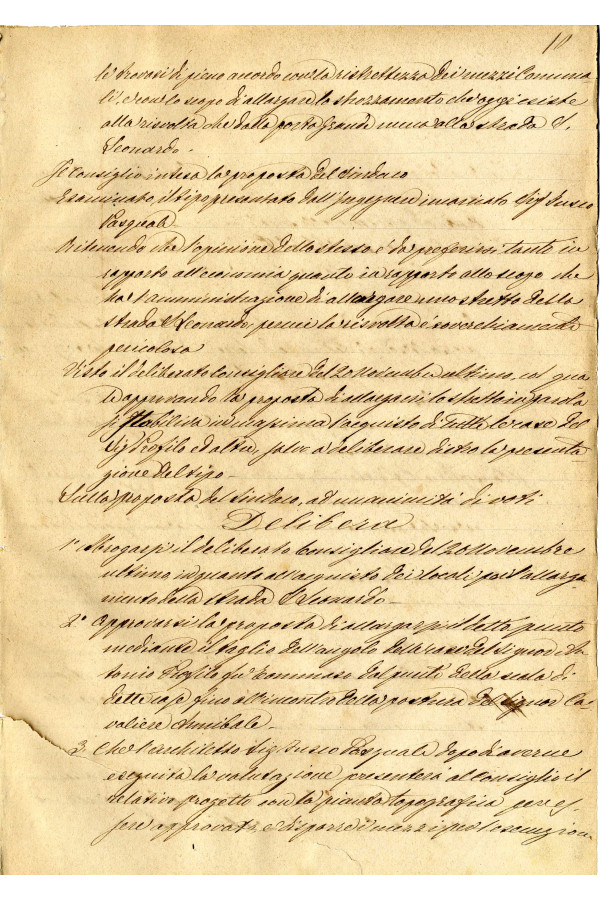 10
le trovasi di pieno accordo con la ristrettezza dei mezzi Comuna
li, e con lo scopo di allargare lo strozzamento che oggi esiste
alla risvolta che dalla porta Grande mena alla strada S.
Leonardo.
Il Consiglio intesa la proposta del Sindaco
Esaminato il tipo presentato dall'Ingegnere incaricato Sigr Pasquale
Ritenendo che l'opinione dello stesso è da preferirsi tanto in
rapporto all'economia quanto in rapporto allo scopo che
ha l'amministrazione di allargare uno stretto della
strada S. Leonardo, perchè la risvolta è soverchiamente
pericolosa
Visto il deliberato Consigliare del 20 Novembre ultimo, col qua
le approvando la proposta di allargarsi lo stretto in parola
si stabiliva in massima l'acquisto di tutte le case del
Sigr Profilo ed altri, salvo a deliberare dietro la presenta
zione del tipo.
Sulla proposta del Sindaco, ad unanimità di voti
Delibera
1° Abrogarsi il deliberato Consigliare del 20 Novembre
ultimo in quanto all'acquisto dei locali per l'allarga
mento della strada S. Leonardo.
2° Approvarsi la proposta di allargarsi il detto punto
mediante il taglio dell'angolo della casa del Signor An
tonio Profilo fu Tommaso dal punto della scala di
dette case fino all'incontro della del Signor Ca
valiere Annibale.
3. Che l'architetto Sigr Pasquale dopo di averne
eseguita la valutazione presenterà al Consiglio il
relativo progetto con la pianta topografica per es
sere approvato, e disporre i mezzi per l'esecuzione